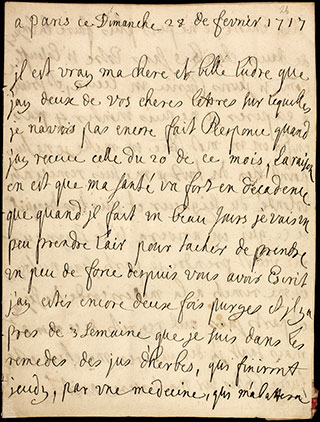 a Paris ce Dimanche 28 de fevrier 1717
il est vray ma chere et belle Ludre que
jay deux de vos cheres lettres sur lequelles
je n'avois pas encre fait Responce quand
jay receue celle du 20 de ce mois, la raison
en est que ma santé va fort en decadence
que quand il fait un beau jours je vais un
peu prendre l'air pour tacher de prendre
un peu de force despuis vous avoir Escrit
jay estés encore deux fois purges et il ya
pres de 3 Semaine que je suis dans les
remedes des jus d'herbes, qui finiront
jeudy, par une medecine, qui m'abattera